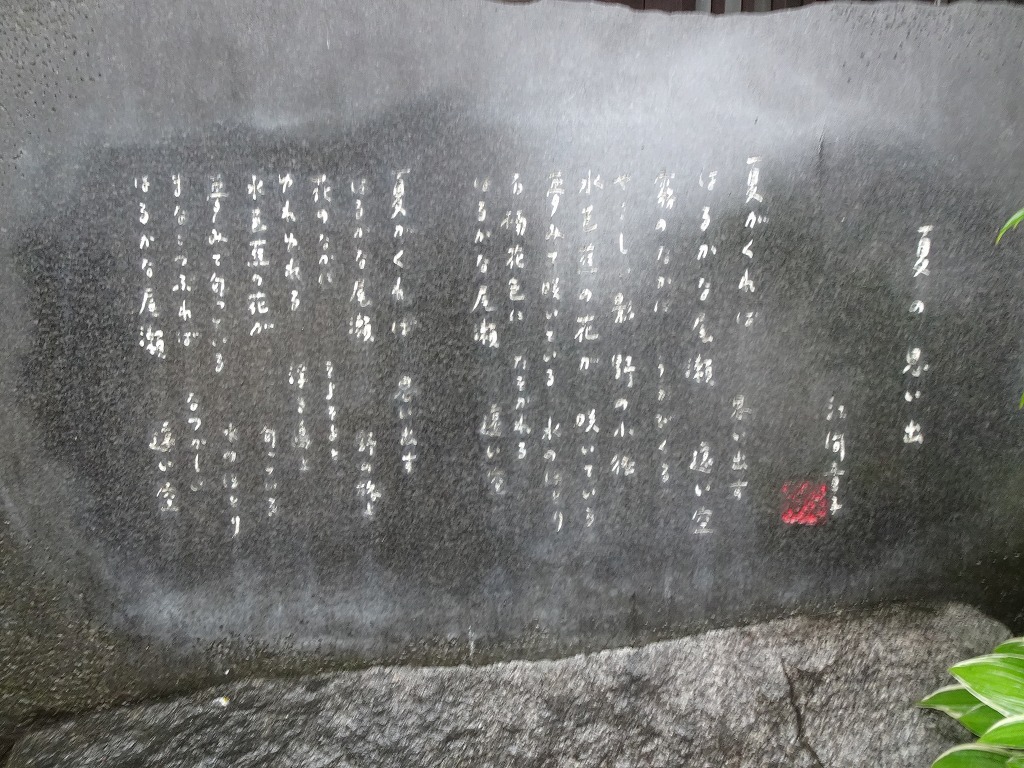 夏の思い出
江間章子
夏がくれば 思い出す
はるかな尾瀬 遠い空
霧のなかに うかびくる
やさしい影 野の小径
水芭蕉の花が 咲いている
夢みて咲いている 水のほとり
石楠花色に たそがれる
はるかな尾瀬 遠い空
夏がくれば 思い出す
はるかな尾瀬 野の旅よ
花のなかに そよそよと
ゆれゆれる 浮き島よ
水芭蕉の花が 匂っている
夢みて匂っている 水のほとり
まなこつぶれば なつかしい
はるかな尾瀬 遠い空